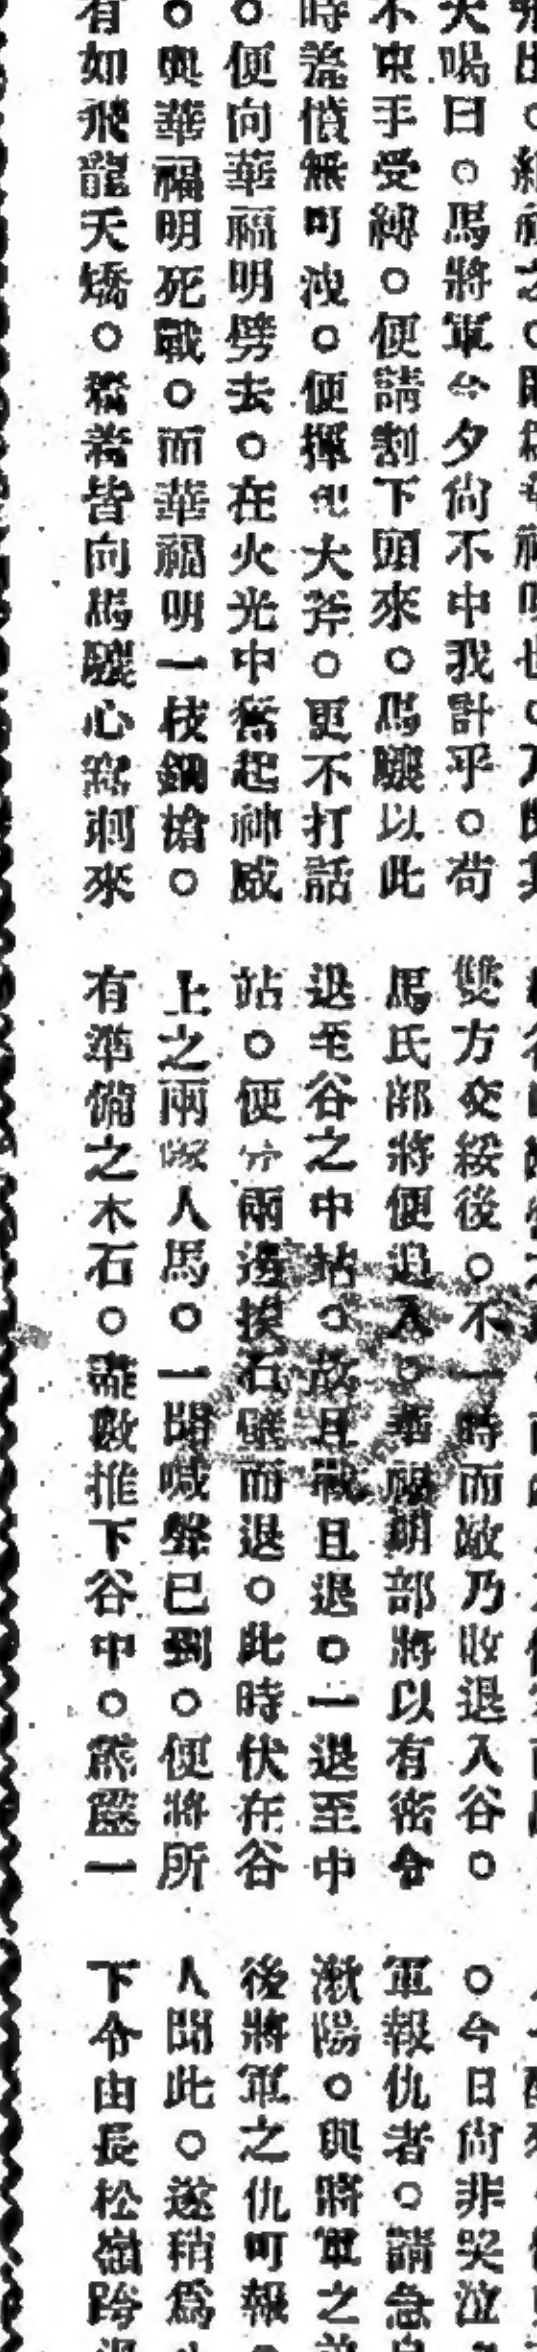 大喝曰。馬將軍今夕尙不中我計乎。苟
不束手受縛。便請割下頭來。馬驥以此
時羞憤無可洩。便揮起大斧。更不打話
。便向華福明劈去。在火光中奮起神威
。與華福明死戰。而華福明一枝鋼槍。
有如飛龍天矯。着着皆向馬驥心窩刺來
雙方交綏後。不一時而敵乃敗退入谷。
馬氏部將便追入。華福明部將以有密令
退至谷之中站。故且戰且退。一退至中
站。便分兩邊挨石壁而退。此時伏在谷
上之兩隊人馬。一聞喊聲已到。便將所
有準備之木石。盡數推下谷中。熊羆一
。今日尙非哭泣
軍報仇者。請急
漵陽。與將軍之
後將軍之仇可報
人聞此。遂稍爲
下令由長松嶺跨